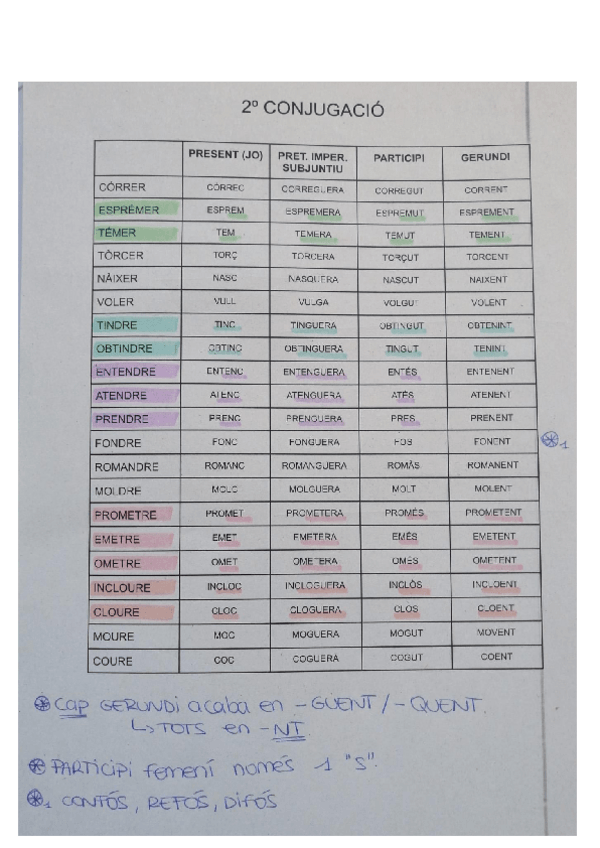 2º CONJUGACIÓ
PRESENT (JO) PRET. IMPER. SUBJUNTIU PARTICIPI GERUNDI
CÓRRER CÓRREC CORREGUERA CORREGUT CORRENT
ESPRÉMER ESPREM ESPREMERA ESPREMUT ESPREMENT
TÉMER TEM TEMERA TEMUT TEMENT
TÒRCER TORÇ TORCERA TORÇUT TORCENT
NÀIXER NASC NASQUERA NASCUT NAIXENT
VOLER VULL VULGA VOLGUT VOLENT
TINDRE TINC TINGUERA OBTINGUT OBTENINT
OBTINDRE OBTINC OBTINGUERA TINGUT TENINT
ENTENDRE ENTENC ENTENGUERA ENTÉS ENTENENT
ATENDRE ATENC ATENGUERA ATÉS ATENENT
PRENDRE PRENC PRENGUERA PRES PRENENT
FONDRE FONC FONGUERA FOS FONENT 1
ROMANDRE ROMANC ROMANGUERA ROMÀS ROMANENT
MOLDRE MOLC MOLGUERA MOLT MOLENT
PROMETRE PROMET PROMETERA PROMÉS PROMETENT
EMETRE EMET EMETERA EMÉS EMETENT
OMETRE OMET OMETERA OMÉS OMETENT
INCLOURE INCLOC INCLOGUERA INCLÒS INCLOENT
CLOURE CLOC CLOGUERA CLOS CLOENT
MOURE MOC MOGUERA MOGUT MOVENT
COURE COC COGUERA COGUT COENT
CAP GERUNDI acaba en -GUENT / -QUENT.
↳ TOTS en -NT
PARTICIPI femení només 1 "S".
1 CONFÓS, REFÓS, DIFÓS